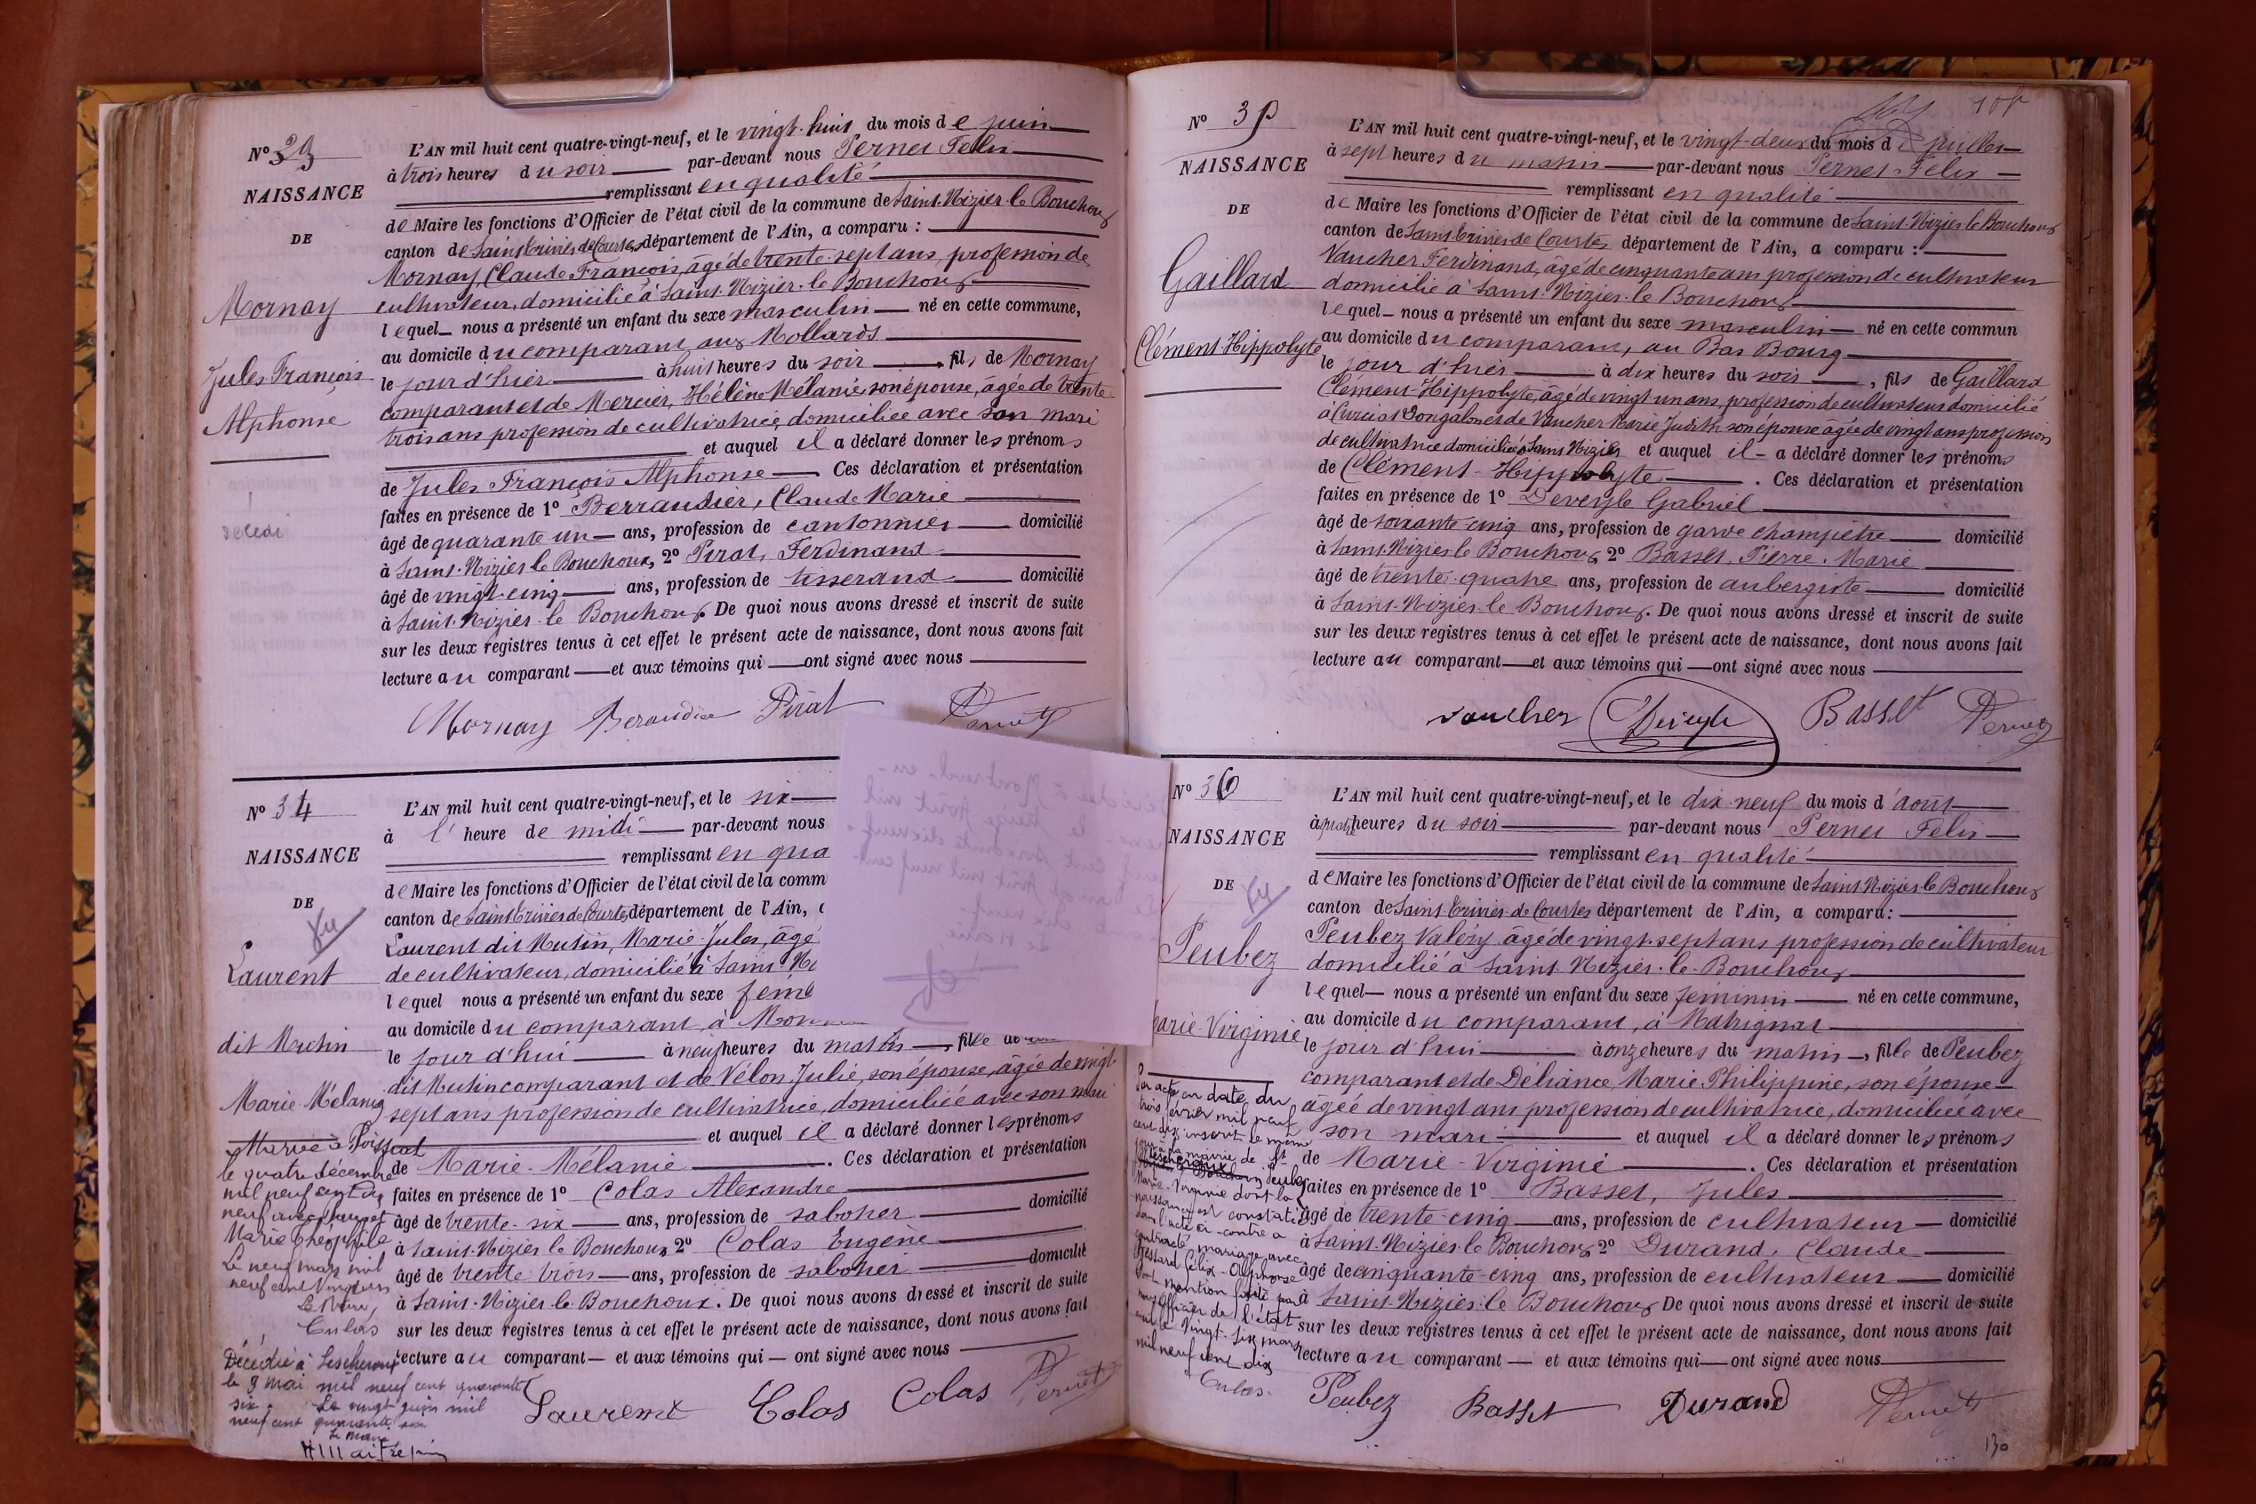 Nº 33
NAISSANCE
DE
Mornay
Jules François
Alphonse
L'AN mil huit cent quatre-vingt-neuf, et le vingt-huit du mois de juin
à trois heures du soir par-devant nous Pernet Félix
remplissant en qualité
de Maire les fonctions d'Officier de l'état civil de la commune de Saint-Nizier-le-Bouchoux
canton de Saint Trivier de Courtes département de l'Ain, a comparu :
Mornay, Claude François, âgé de trente-sept ans, profession de
cultivateur, domicilié à Saint-Nizier-le-Bouchoux
lequel nous a présenté un enfant du sexe masculin né en cette commune,
au domicile du comparant, aux Mollards
le jour d'hier à huit heures du soir, fils de Mornay
comparant et de Mercier, Hélène Mélanie, son épouse, âgée de trente-
trois ans profession de cultivatrice, domiciliée avec son mari
et auquel il a déclaré donner les prénoms
de Jules François Alphonse. Ces déclaration et présentation
faites en présence de 1º Berraudier, Claude Marie
âgé de quarante un ans, profession de cantonnier domicilié
à Saint-Nizier le Bouchoux, 2º Pirat, Ferdinand
âgé de vingt-cinq ans, profession de tisserand domicilié
à Saint-Nizier-le Bouchoux. De quoi nous avons dressé et inscrit de suite
sur les deux registres tenus à cet effet le présent acte de naissance, dont nous avons fait
lecture au comparant et aux témoins qui ont signé avec nous
Mornay Beraudier Pirat Pernet
Nº 34
NAISSANCE
DE
Laurent
dit Mutin
Marie-Mélanie
Mariée à Poissiat
le quatre décembre
mil neuf cent dix
neuf avec
Marie Théophile
Le neuf mars mil
neuf cent vingt un
Le Maire,
Culas
Décédée à Lescheroux
le 9 mai mil neuf cent quarante
six. Le vingt juin mil
neuf cent quarante six
Le Maire
L'AN mil huit cent quatre-vingt-neuf, et le six
à l' heure de midi par-devant nous
remplissant en qua
de Maire les fonctions d'Officier de l'état civil de la comm
canton de Saint Trivier de Courtes département de l'Ain,
Laurent dit Mutin, Marie-Jules, âgé
de cultivateur, domicilié à Saint-Ni
lequel nous a présenté un enfant du sexe fémi
au domicile du comparant, à
le jour d'hui à neuf heures du matin, fille de
dit Mutin comparant et de Vélon Julie, son épouse, âgée de vingt-
sept ans profession de cultivatrice, domiciliée avec son mari
et auquel il a déclaré donner les prénoms
de Marie-Mélanie. Ces déclaration et présentation
faites en présence de 1º Colas Alexandre
âgé de trente-six ans, profession de sabotier domicilié
à Saint-Nizier le Bouchoux 2º Colas Eugène
âgé de trente-trois ans, profession de sabotier domicilié
à Saint-Nizier-le-Bouchoux. De quoi nous avons dressé et inscrit de suite
sur les deux registres tenus à cet effet le présent acte de naissance, dont nous avons fait
lecture au comparant et aux témoins qui ont signé avec nous
Laurent Colas Colas Pernet
Nº 35
NAISSANCE
DE
Gaillard
Clément-Hippolyte
L'AN mil huit cent quatre-vingt-neuf, et le vingt-deux du mois de juillet
à sept heures du matin par-devant nous Pernet Félix
remplissant en qualité
de Maire les fonctions d'Officier de l'état civil de la commune de Saint-Nizier le Bouchoux
canton de Saint Trivier de Courtes département de l'Ain, a comparu :
Vaucher Ferdinand, âgé de cinquante ans profession de cultivateur
domicilié à Saint-Nizier-le Bouchoux
lequel nous a présenté un enfant du sexe masculin né en cette commun
au domicile du comparant, au Bas Bourg
le jour d'hier à dix heures du soir, fils de Gaillard
Clément-Hippolyte, âgé de vingt un ans, profession de cultivateur domicilié
à Curciat Dongalon et de Vaucher Marie Judith son épouse âgée de vingt ans profession
de cultivatrice domiciliée à Saint Nizier et auquel il a déclaré donner les prénoms
de Clément-Hippolyte. Ces déclaration et présentation
faites en présence de 1º Deveyle Gabriel
âgé de soixante-cinq ans, profession de garde champêtre domicilié
à Saint-Nizier le Bouchoux 2º Basset, Pierre-Marie
âgé de trente-quatre ans, profession de aubergiste domicilié
à Saint-Nizier-le Bouchoux. De quoi nous avons dressé et inscrit de suite
sur les deux registres tenus à cet effet le présent acte de naissance, dont nous avons fait
lecture au comparant et aux témoins qui ont signé avec nous
vaucher Deveyle Basset Pernet
Nº 36
NAISSANCE
DE
Peubez
Marie-Virginie
Par acte en date du
trois février mil neuf
cent dix, inscrit le même
jour à la mairie de St
Nizier le Bouchoux Peubez
Marie-Virginie dont la
naissance est constatée
dans l'acte ci-contre a
contracté mariage avec
Félix-Alphonse
Dont mention faite par
nous officier de l'état
civil le vingt-six mars
mil neuf cent dix
Culas
L'AN mil huit cent quatre-vingt-neuf, et le dix-neuf du mois d'août
à quatre heures du soir par-devant nous Pernet Félix
remplissant en qualité
de Maire les fonctions d'Officier de l'état civil de la commune de Saint Nizier le Bouchoux
canton de Saint Trivier de Courtes département de l'Ain, a comparu :
Peubez Valéry âgé de vingt-sept ans profession de cultivateur
domicilié à Saint-Nizier-le-Bouchoux
lequel nous a présenté un enfant du sexe féminin né en cette commune,
au domicile du comparant, à Matrignat
le jour d'hui à onze heures du matin, fille de Peubez
comparant et de Déliance, Marie Philippine, son épouse
âgée de vingt ans profession de cultivatrice, domiciliée avec
son mari et auquel il a déclaré donner les prénoms
de Marie-Virginie. Ces déclaration et présentation
faites en présence de 1º Basset, Jules
âgé de trente-cinq ans, profession de cultivateur domicilié
à Saint-Nizier-le Bouchoux 2º Durand, Claude
âgé de cinquante-cinq ans, profession de cultivateur domicilié
à Saint-Nizier-le Bouchoux De quoi nous avons dressé et inscrit de suite
sur les deux registres tenus à cet effet le présent acte de naissance, dont nous avons fait
lecture au comparant et aux témoins qui ont signé avec nous
Peubez Basset Durand Pernet
130